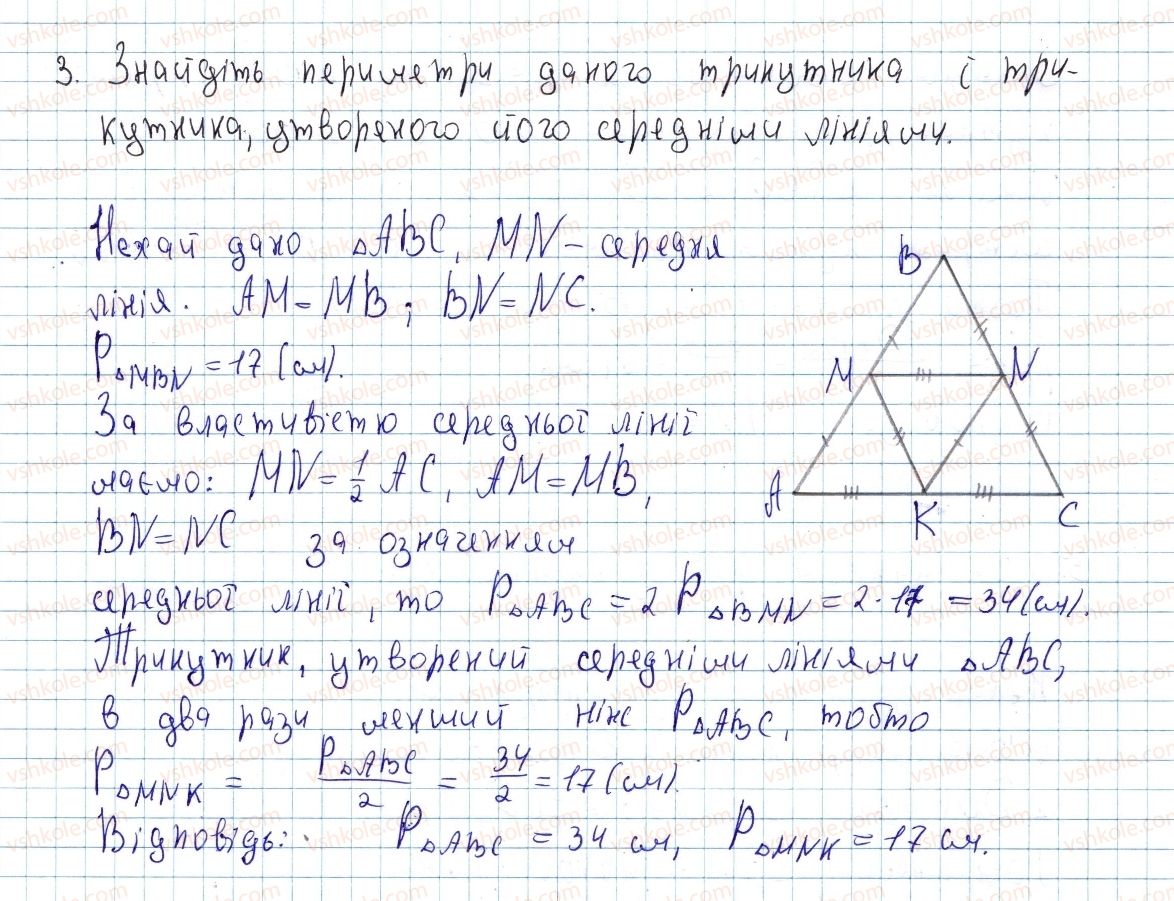 3. Знайдіть периметри даного трикутника і три-
кутника, утвореного його середніми лініями.
Нехай дано △ABC, MN – середня
лінія. AM = MB; BN = NC.
P△MBN = 17 (см).
За властивістю середньої лінії
маємо: MN = 1/2 AC, AM = MB,
BN = NC за означенням
середньої лінії, то P△ABC = 2 P△BMN = 2 · 17 = 34 (см).
Трикутник, утворений середніми лініями △ABC,
в два рази менший ніж P△ABC, тобто
P△MNK = P△ABC/2 = 34/2 = 17 (см).
Відповідь: P△ABC = 34 см, P△MNK = 17 см.
B
M
N
A
K
C
vshkole.com